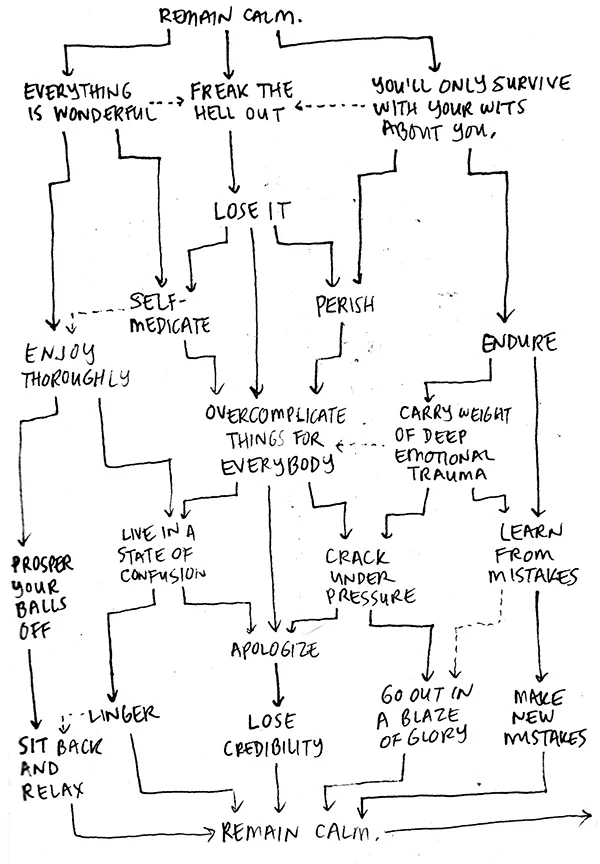 REMAIN CALM.
EVERYTHING
IS WONDERFUL
FREAK THE
HELL OUT
YOU'LL ONLY SURVIVE
WITH YOUR WITS
ABOUT YOU.
LOSE IT
SELF-
MEDICATE
PERISH
ENJOY
THOROUGHLY
ENDURE
OVERCOMPLICATE
THINGS FOR
EVERYBODY
CARRY WEIGHT
OF DEEP
EMOTIONAL
TRAUMA
LIVE IN A
STATE OF
CONFUSION
CRACK
UNDER
PRESSURE
LEARN
FROM
MISTAKES
PROSPER
YOUR
BALLS
OFF
APOLOGIZE
LINGER
LOSE
CREDIBILITY
GO OUT IN
A BLAZE
OF GLORY
MAKE
NEW
MISTAKES
SIT BACK
AND
RELAX
REMAIN CALM.